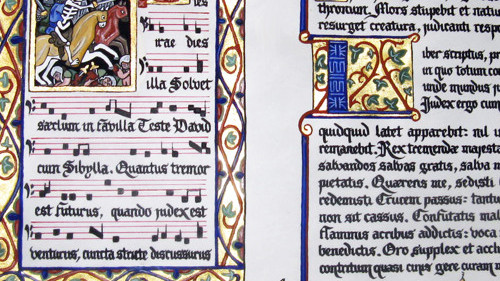 ies
irae dies
illa Solvet
sæclum in favilla Teste David
cum Sibylla. Quantus tremor
est futurus, quando judex est
venturus, cuncta stricte discussurus
thronum, Mors stupebit et
resurget creatura, judicanti
Liber scriptus,
in quo totum
unde mundus
Judex ergo cum
quidquid latet apparebit: nil
remanebit. Rex tremendæ
salvandos salvas gratis, salva
pietatis. Quærens me, sedisti
redemisti Crucem passus:
non sit cassus. Confutatis
flammis acribus addictis: voca
benedictis. Oro supplex et
contritum quasi cinis gere curam